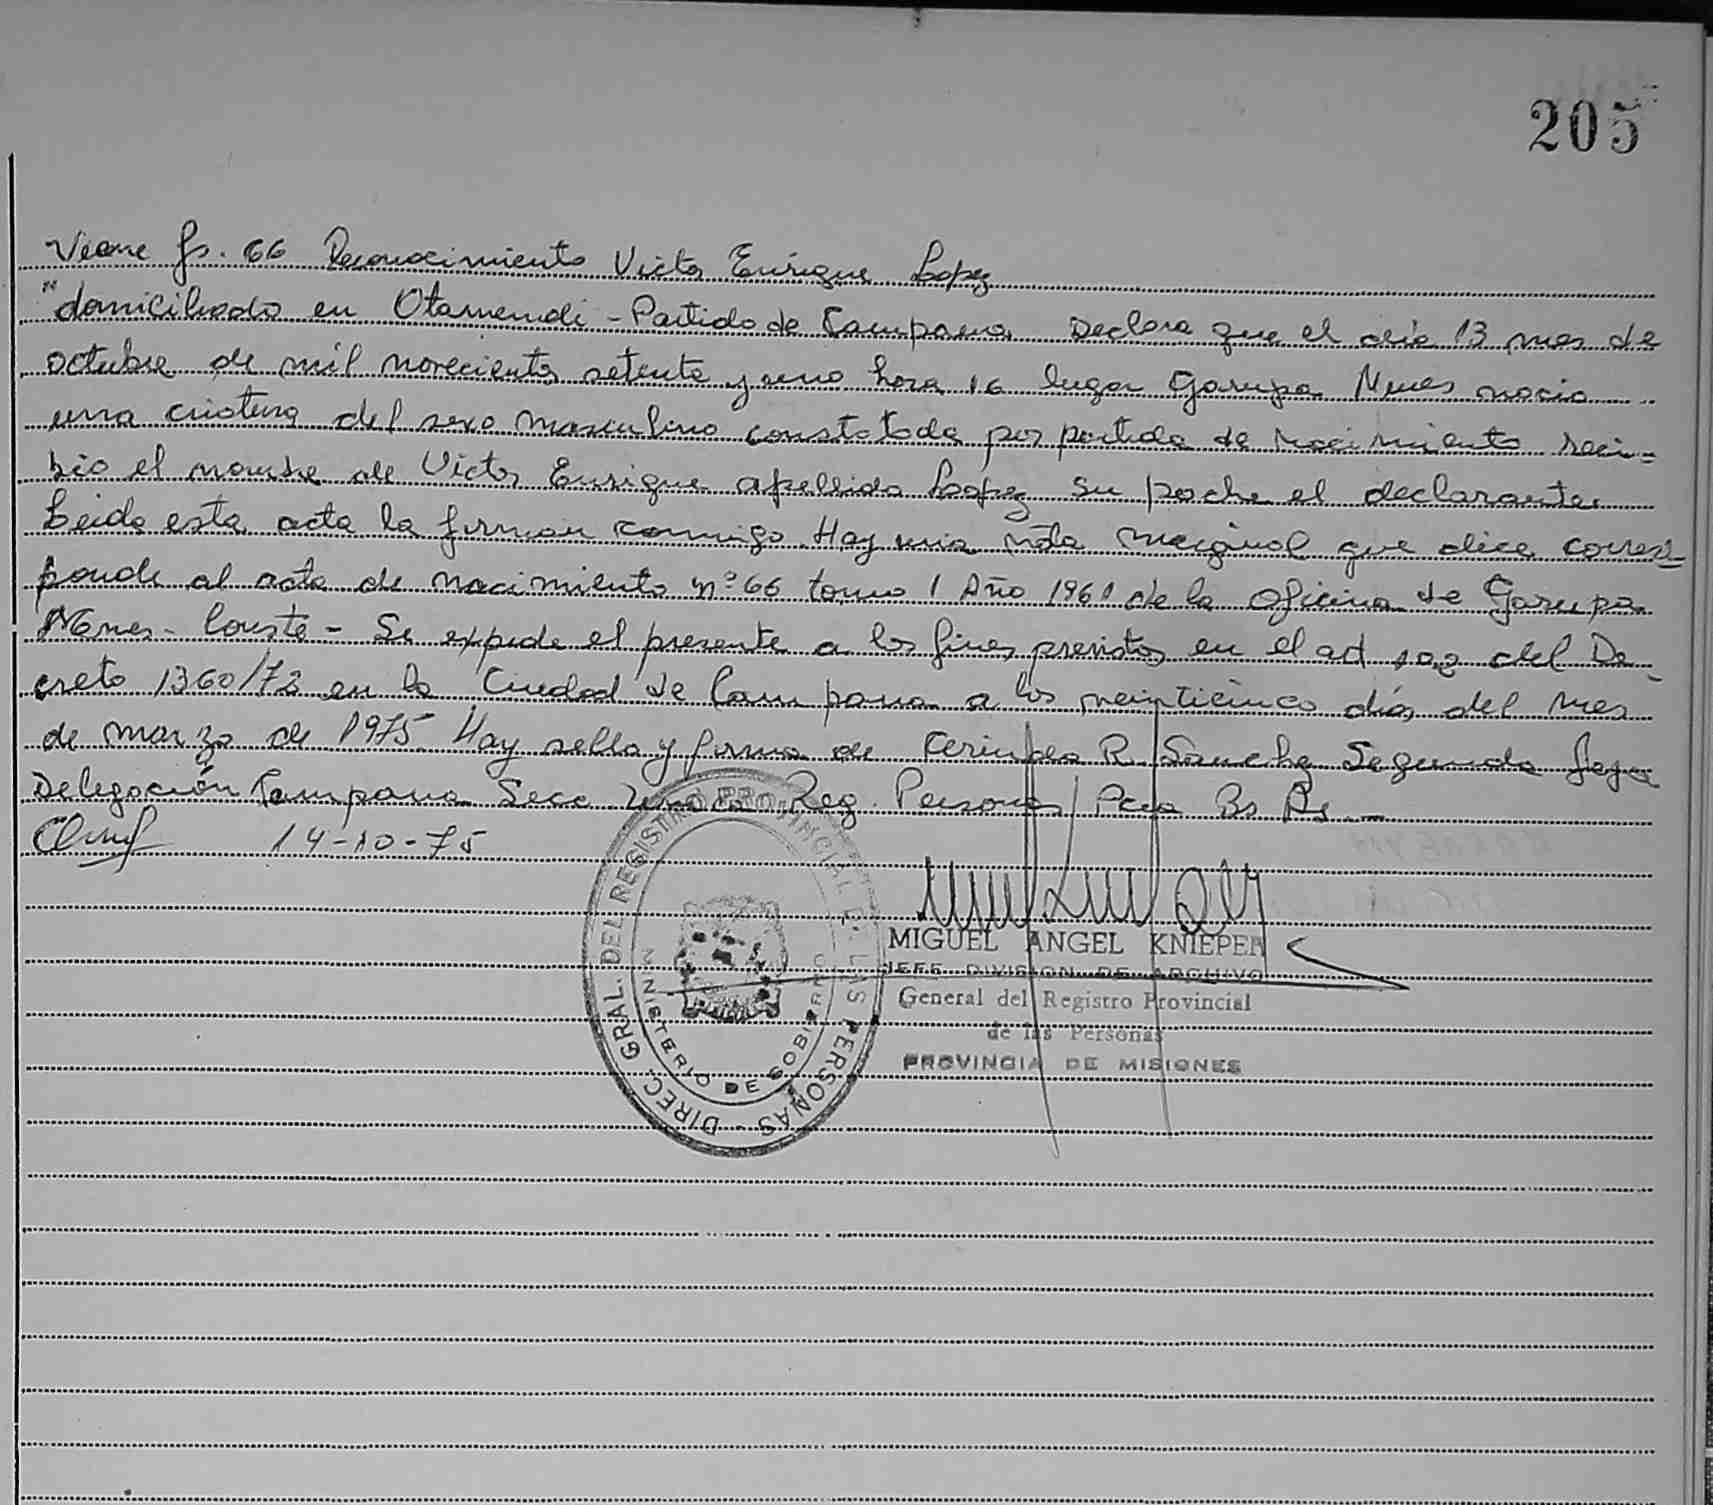 205
Viene fs. 66 Reconocimiento Victor Enrique Lopez
"domiciliado en Otamendi - Partido de Campana Declara que el día 13 mes de
octubre de mil novecientos setenta y uno hora 16 lugar Garupa Mnes nacio
una criatura del sexo masculino constatada por partida de nacimiento reci-
bio el nombre de Victor Enrique apellido Lopez su padre el declarante
Leida esta acta la firman conmigo. Hay una nota marginal que dice corres-
ponde al acta de nacimiento nº 66 tomo 1 Año 1961 de la Oficina de Garupa
Mnes - Conste - Se expide el presente a los fines previstos en el del De-
creto 1360/72 en la Ciudad de Campana a los veinticinco días del mes
de marzo de 1975 Hay sello y firma de R. Sanchez Segunda Jefa
Delegación Campana Secc Reg. Personas Pcia Bs As
14-10-75
DIREC. GRAL. DEL REGISTRO PROVINCIAL DE LAS PERSONAS -
MINISTERIO DE GOBIERNO
MIGUEL ANGEL KNIEPER
JEFE DIVISION DE ARCHIVO
General del Registro Provincial
de las Personas
PROVINCIA DE MISIONES